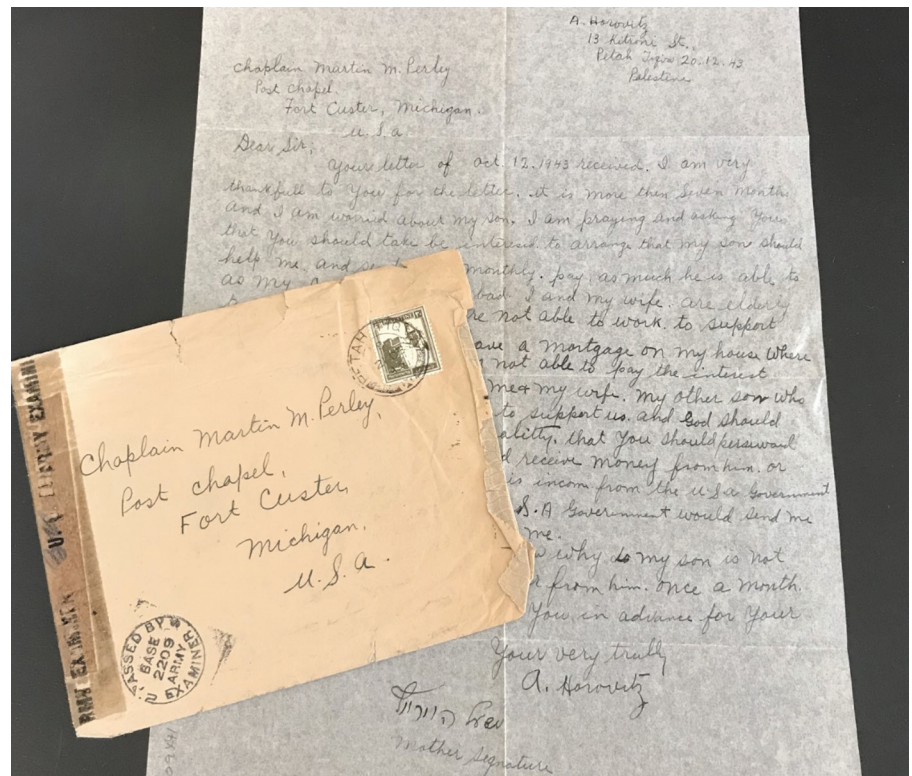 A. Horovitz
13 Ketroni St.
Petah Tiqva 20.12.43
Palestine
Chaplain Martin M. Perley
Post Chapel.
Fort Custer, Michigan.
U.S.A
Dear Sir;
Your letter of oct. 12.1943 received. I am very
thankfull to You for the letter. it is more then seven month
and I am worried about my son. I am praying and asking You
that You should take be interesed to arrange that my son should
help me and monthly. pay as much he is able to
as my bad I and my wife are elderly
not able to work. to support
a mortgage on my house where
not able to pay the interest
me & my wife. my other son who
to support us. and God should
that You should persuward
receive money from him. or
incom from the U.S.a Government
S.A Government would send me
me.
why is my son is not
from him. once a month.
You in advance for Your
Your very trully
A. Horovitz
Mother Signature
Chaplain Martin M. Perley,
Post chapel,
Fort Custer,
Michigan.
U.S.A.
PASSED BY
BASE
2209
ARMY
EXAMINER